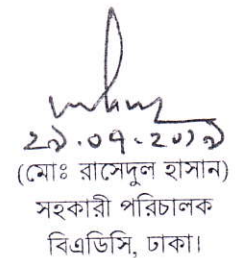 ২৯.০৭.২০১৯
(মোঃ রাসেদুল হাসান)
সহকারী পরিচালক
বিএডিসি, ঢাকা।